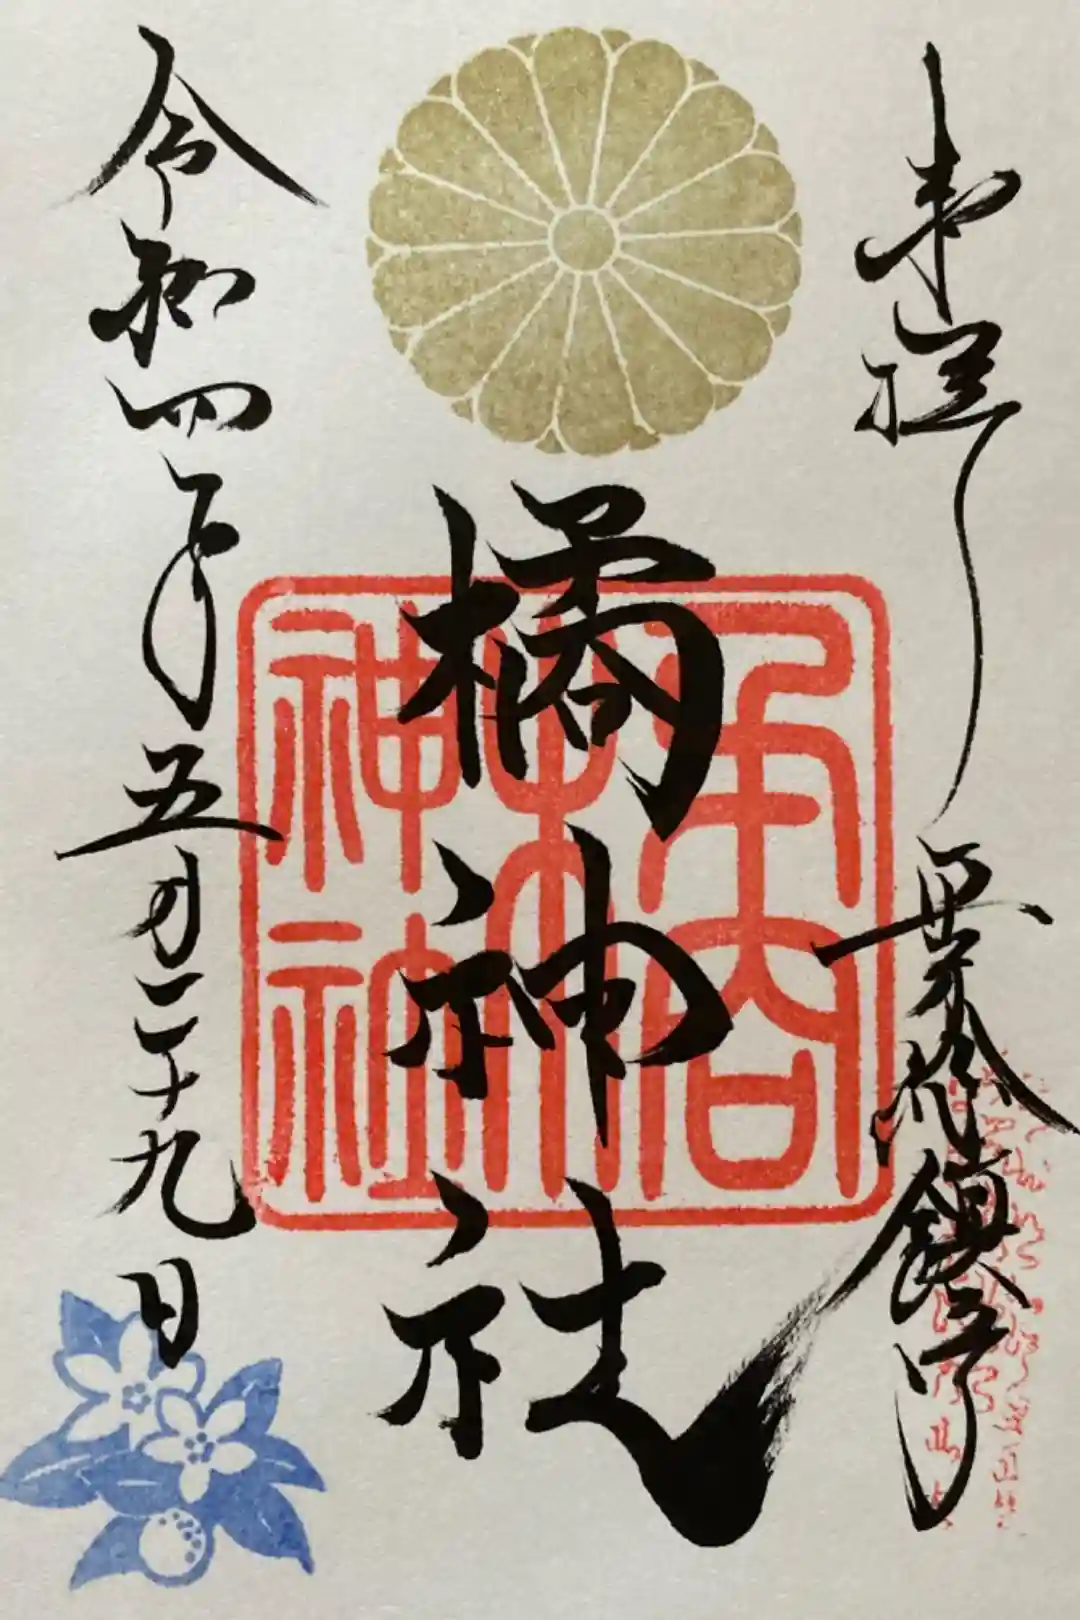 奉拝
鎮守
橘神社
橘神社
令和四年五月二十九日